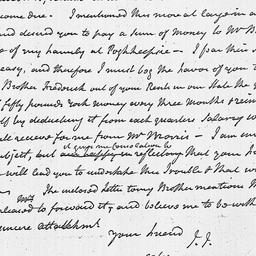 come due. I mentioned this more at large in a
and desired you to pay a sum of money to Mr B
of my family at Poghkeepsie – I par this
easy, and therefore I must beg the favor of you t
Brother Frederick out of your Rents in our State the
fifty pounds York money every three months &
by deducting it from each quarters Salary w
all receive for me from Mr Morris – I am un
ubject, but it gives me Consolation to
in reflecting that your
will lead you to undertake this Trouble & that w
The inclosed Letter to my Brother mentions
pleased to forward it, and believe me to be with
sincere attachmt
Your friend J. J.